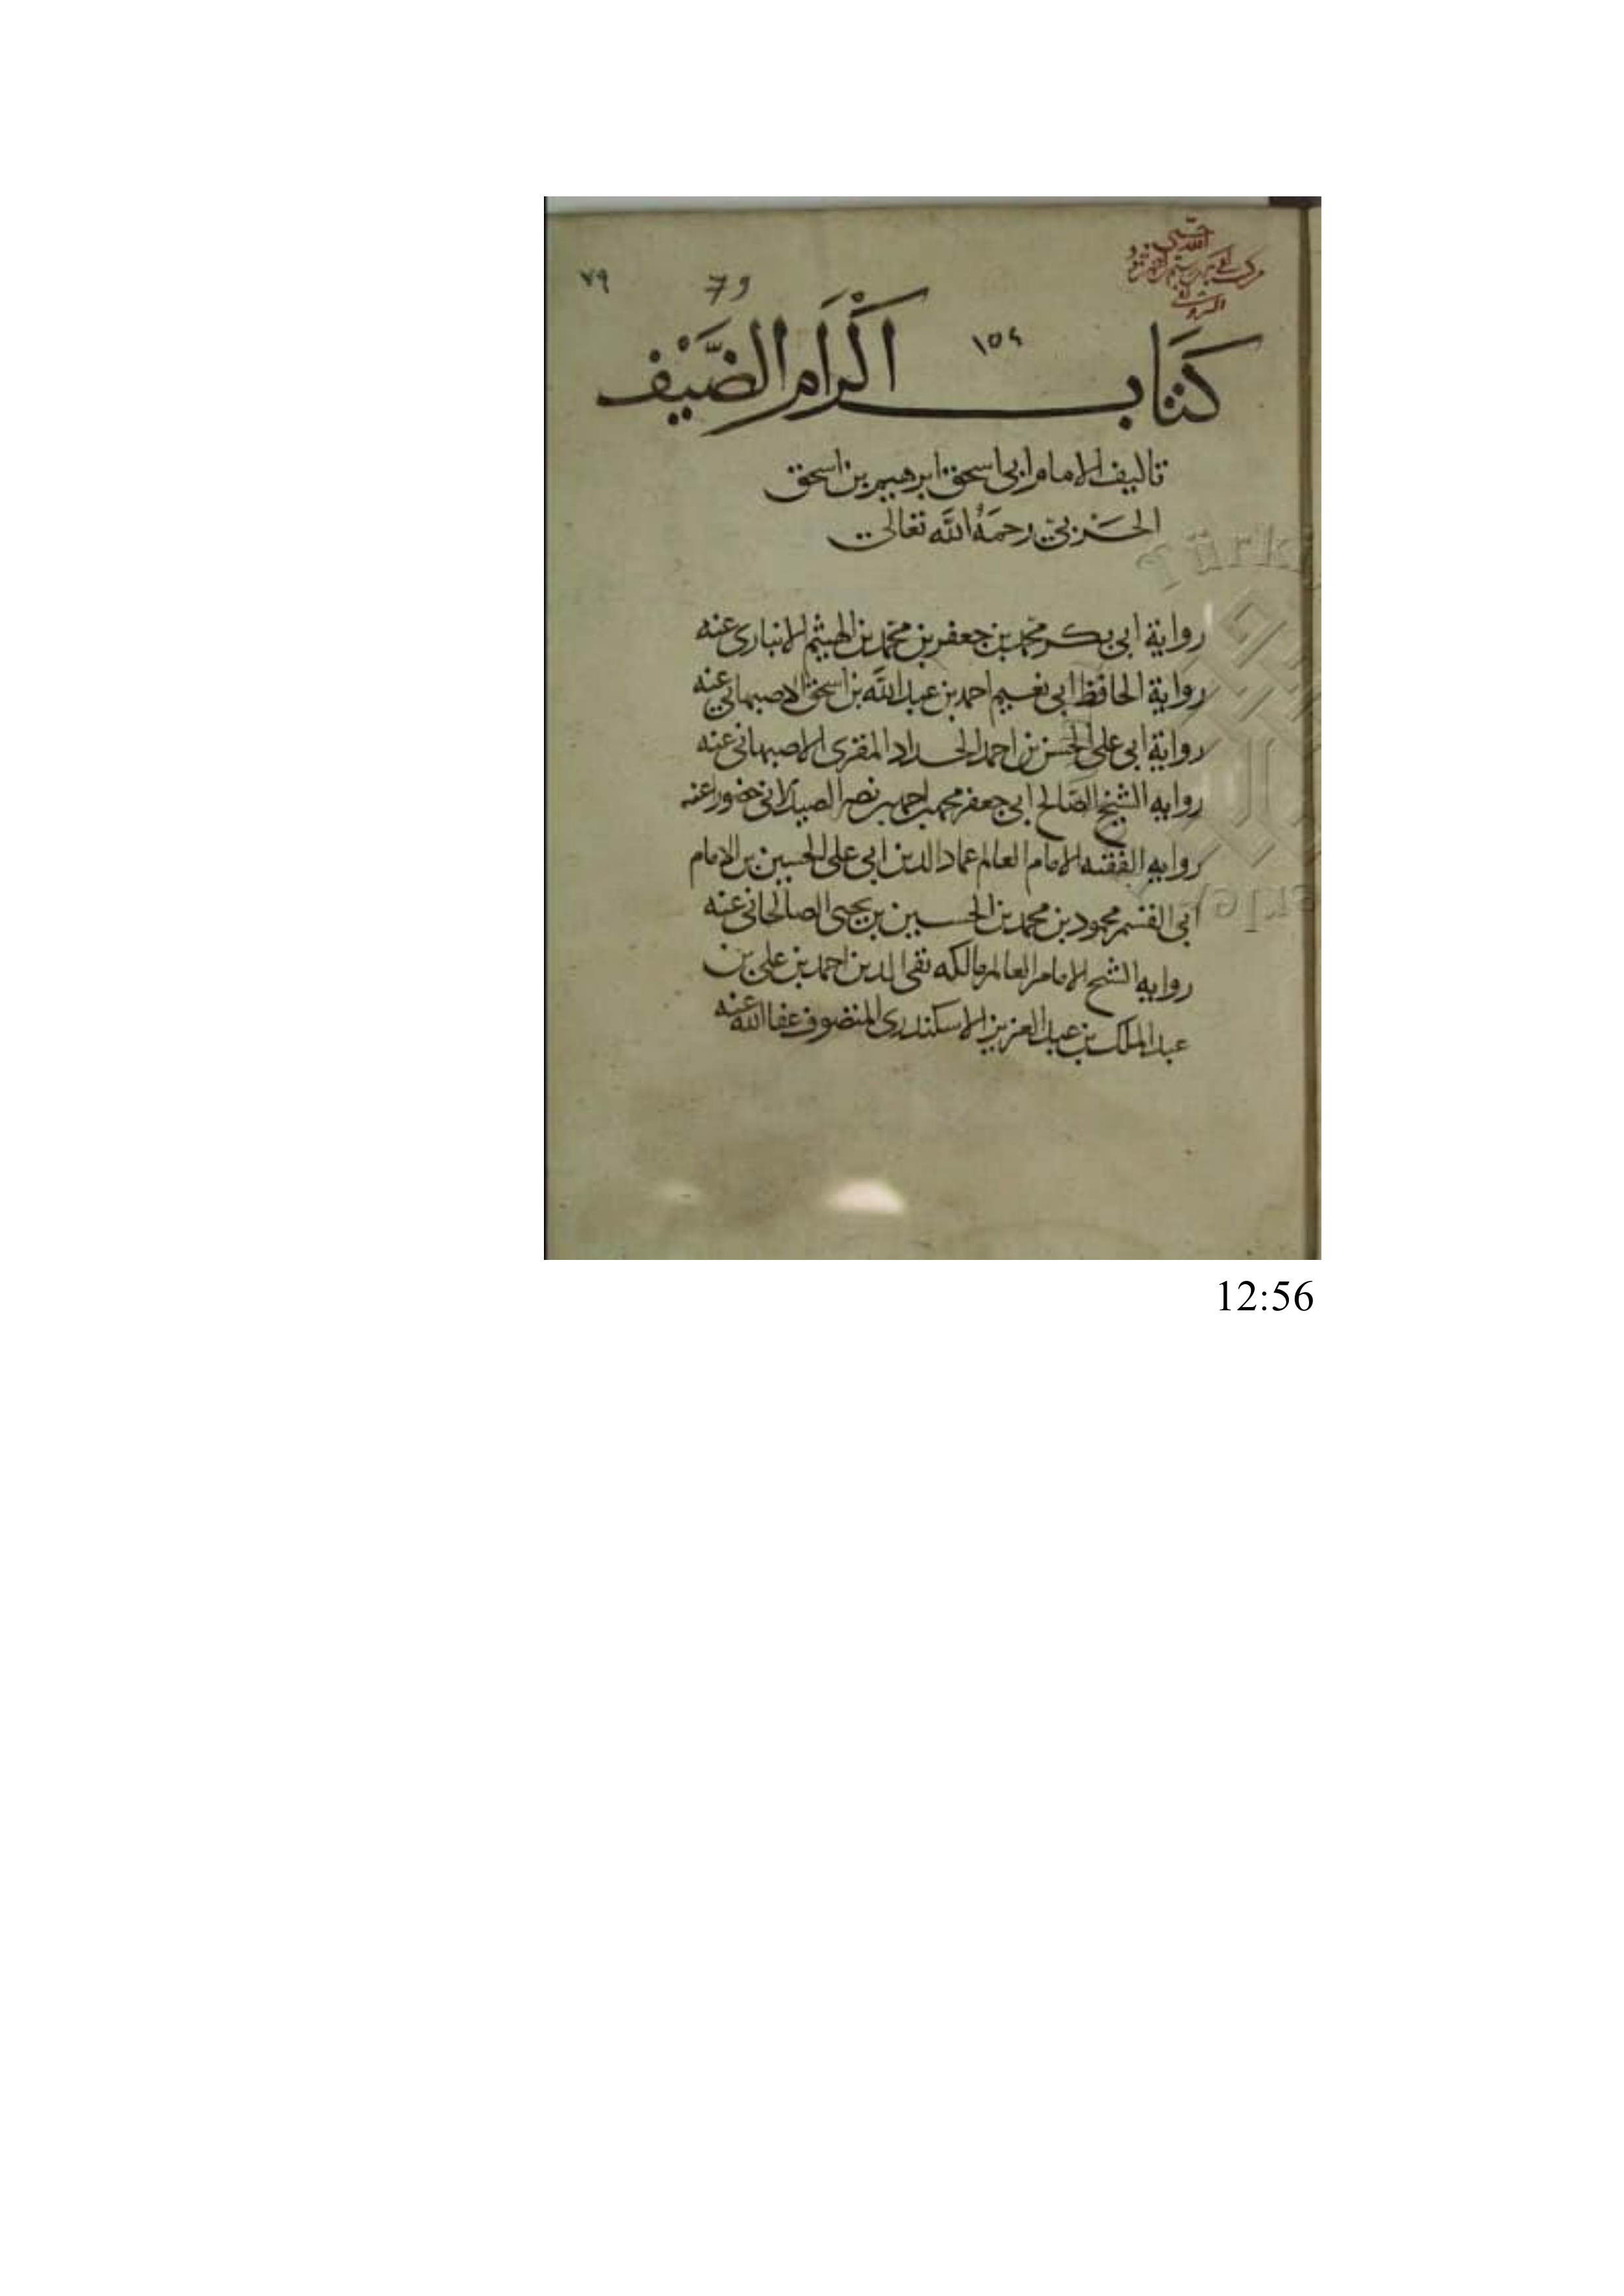 حسبي
الله
٧٩
79
١٥٤
كتاب اكرام الضيف
تاليف الامام ابي اسحق ابرهيم بن اسحق
الحربي رحمه الله تعالى
رواية ابي بكر محمد بن جعفر بن محمد بن الهيثم الانباري عنه
رواية الحافظ ابي نعيم احمد بن عبد الله بن اسحق الاصبهاني عنه
رواية ابي علي الحسن بن احمد الحداد المقرى الاصبهاني عنه
روايه الشيخ الصالح ابي جعفر محمد بن احمد بن نصر الصيدلاني حضورا عنه
روايه الفقيه الامام العالم عماد الدين ابي علي الحسين بن الامام
ابي القسم محمود بن محمد بن الحسين بن يحيى الصالحاني عنه
روايه الشيخ الامام العالم مالكه تقي الدين احمد بن علي بن
عبد الملك بن عبد العزيز الاسكندري المتصوف عفا الله عنه
12:56